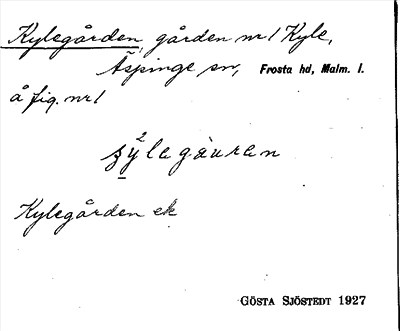 Kylegården, gården nr 1 Kyle,
Äspinge sn, Frosta hd, Malm. l.
å fig. nr 1
Kylegården ek
GÖSTA SJÖSTEDT 1927